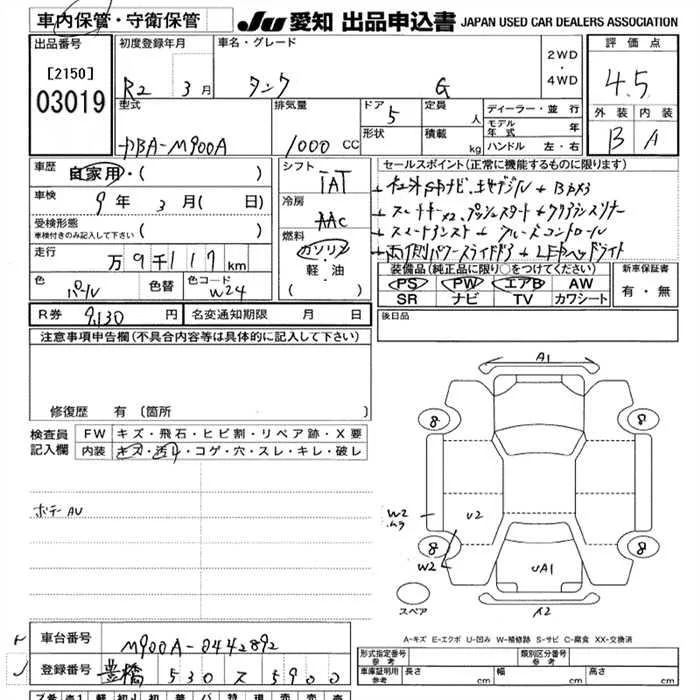 車内保管・守衛保管
JU 愛知 出品申込書 JAPAN USED CAR DEALERS ASSOCIATION
出品番号
[2150]
03019
初度登録年月
R2 3月
車名・グレード
タンク G
2WD
・
4WD
評価点
4.5
外装 内装
B A
型式
DBA-M900A
排気量
1000 CC
ドア
5
形状
定員
人
積載
kg
ディーラー・並行
モデル年式 年
ハンドル 左・右
車歴
自家用・( )
車検
9年 3月( 日)
受検形態
車検付きのみ記入して下さい ( )
走行
万9千117km
色
パール
色替
色コード
W24
シフト
IAT
冷房
AAC
燃料
ガソリン
軽・油
( )
セールスポイント(正常に機能するものに限ります)
+スマートキーx2、プッシュスタート+クリアランスソナー
+スマートアシスト+クルーズコントロール
+両側パワースライドドア+LEDヘッドライト
装備品(純正品に限り○をつけてください)
PS PW エアB AW
SR ナビ TV カワシート
新車保証書
有・無
R券 9,130 円
名変通知期限 月 日
後日品
注意事項申告欄(不具合内容等は具体的に記入して下さい)
修復歴 有 〔箇所
検査員
記入欄
FW キズ・飛石・ヒビ割・リペア跡・X要
内装 キズ・汚れ・コゲ・穴・スレ・キレ・破レ
ボデーAU
A1
8 8
W2
U2
W2
8 8
UA1
スペア
A-キズ E-エクボ U-凹み W-補修跡 S-サビ C-腐食 XX-交換済
車台番号
M900A-0442892
登録番号
豊橋 530 ス 5900
形式指定番号
参考
類別区分番号
参考
車庫証明用
参考
長さ cm
幅 cm
高さ cm